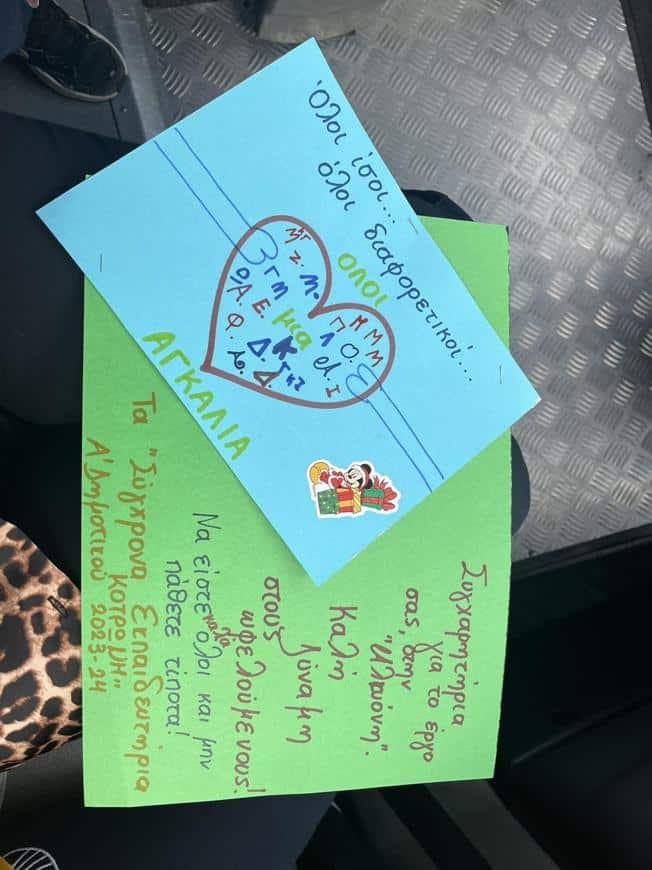 Όλοι ίσοι...
όλοι διαφορετικοί...
ΟΛΟΙ
μια
ΑΓΚΑΛΙΑ
Συγχαρητήρια
για το έργο
σας, στην
Καλή
δύναμη
στους
ωφελούμενους!
Να είστε όλοι καλά και μην
πάθετε τίποτα!
Τα "Σύγχρονα Εκπαιδευτήρια
ΚΟΤΡΩΝΗ"
Α' Δημοτικού 2023-24